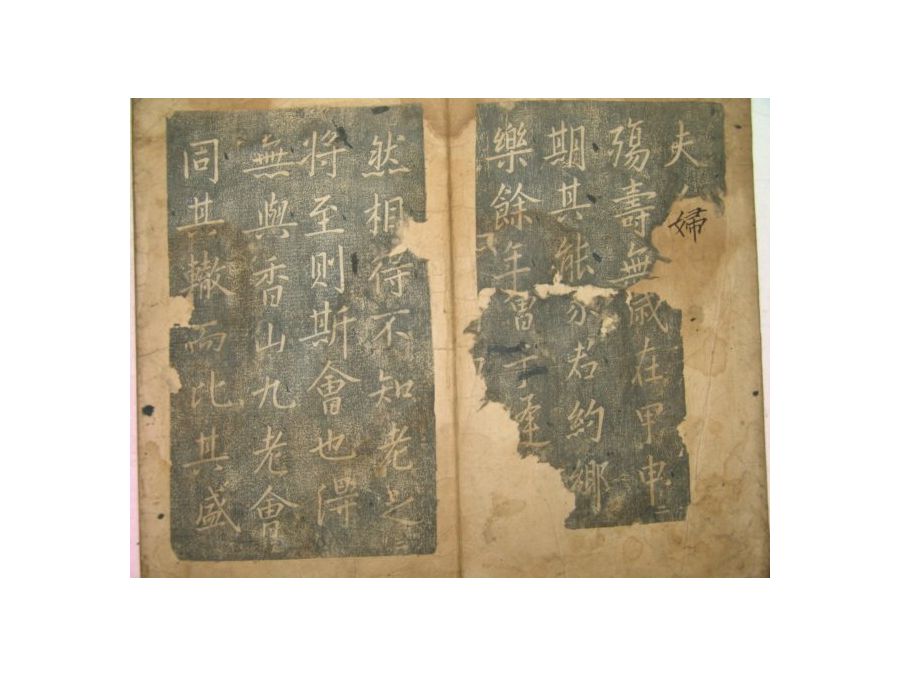 夫婦
殤壽無歲在甲申
期其能 若約鄉
樂餘年
然相得不知老之
將至則斯會也得
無與香山九老會
同其轍而比其盛